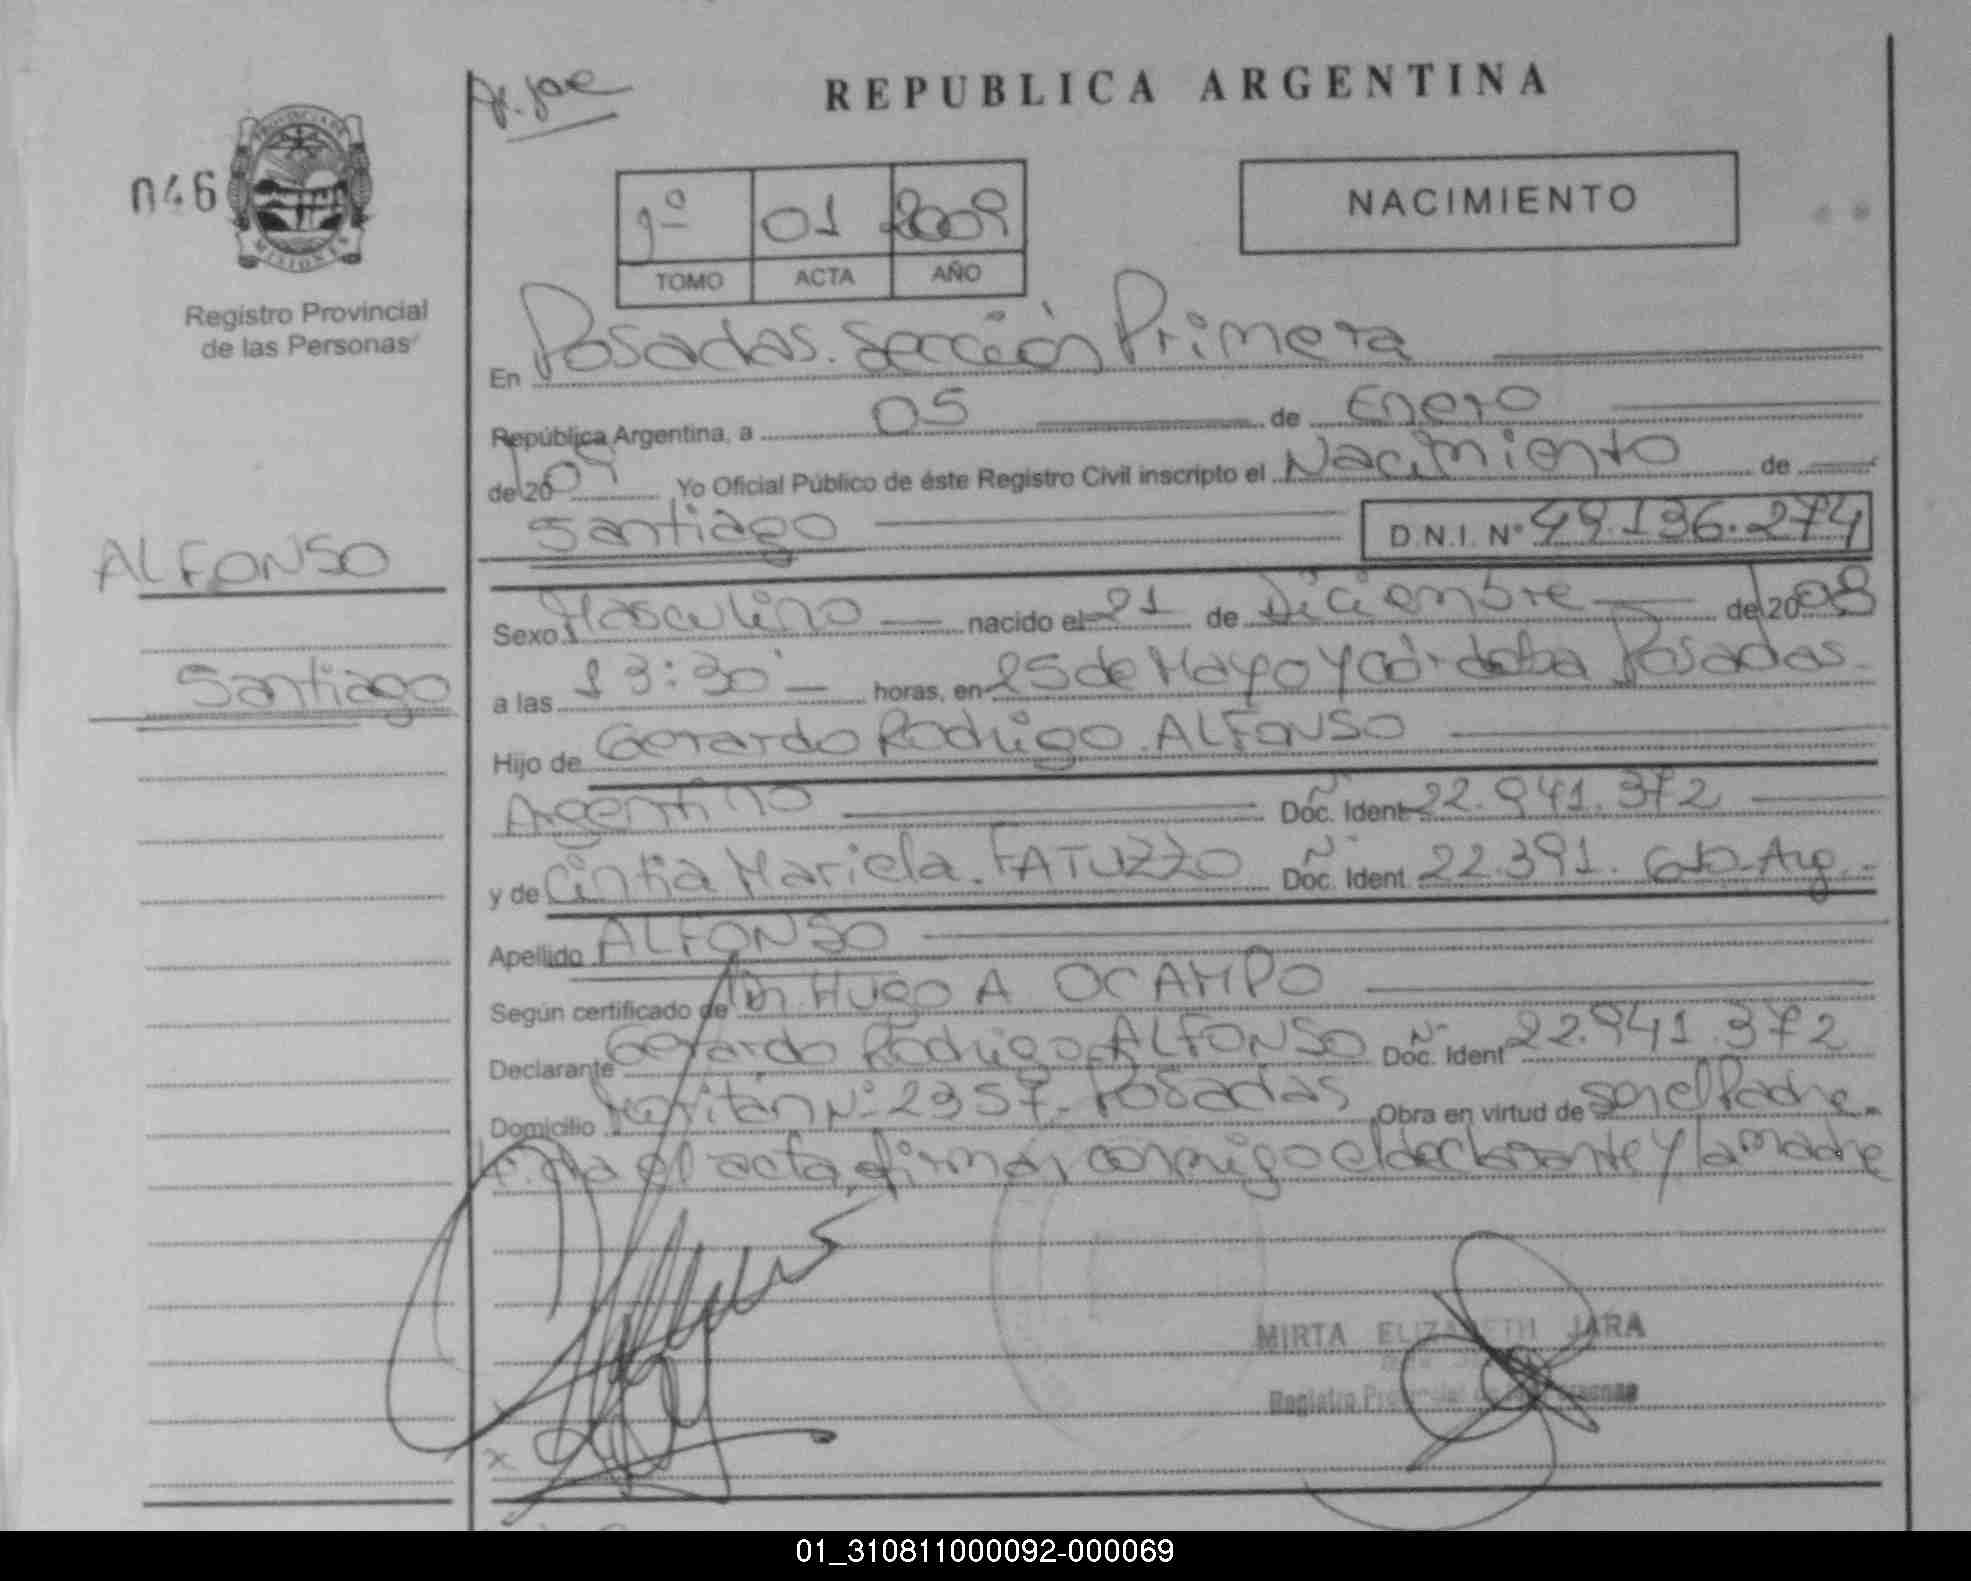 REPUBLICA ARGENTINA
046
PROVINCIA DE
MISIONES
Registro Provincial
de las Personas
01 2009
TOMO ACTA AÑO
NACIMIENTO
En Posadas. Sección Primera
República Argentina, a 05 de Enero
del 2009 Yo Oficial Público de éste Registro Civil inscripto el Nacimiento de
Santiago D.N.I. Nº 49.136.274
ALFONSO
Santiago
Sexo Masculino nacido el 21 de Diciembre del 2008
a las 13:30' horas, en 25 de Mayo y Córdoba Posadas.
Hijo de Gerardo Rodrigo ALFONSO
Argentino Doc. Ident 22.941.372
y de Cintia Mariela. FATUZZO Doc. Ident 22.391. Arg.
Apellido ALFONSO
Según certificado de Dr. HUGO A OCAMPO
Declarante Gerardo Rodrigo ALFONSO Doc. Ident 22.941.372
Domicilio Nº 2357. Posadas Obra en virtud de ser el Padre.
el acta, firman conmigo el declarante y la madre
MIRTA ELIZABETH JARA
Registro Provincial de las Personas
01_310811000092-000069